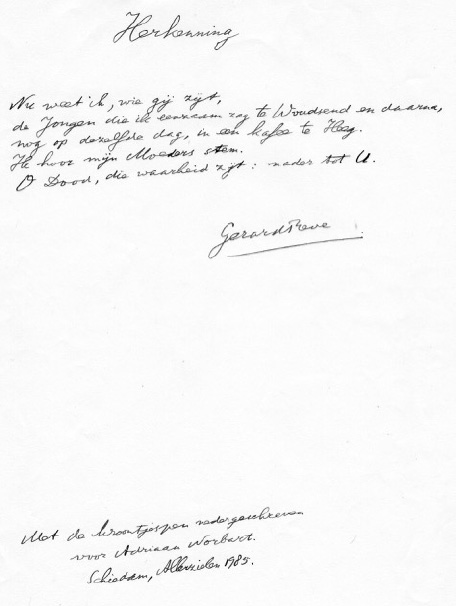 Herkenning
Nu weet ik, wie gij zijt,
de Jongen die ik eenzaam zag te Woudsend en daarna,
nog op dezelfde dag, in een kafee te Heeg.
Ik hoor mijn Moeders stem.
O Dood, die waarheid zijt: nader tot U.
Gerard Reve
Met de kroontjespen nedergeschreven
voor Adriaan
Schiedam, Allerzielen 1985.